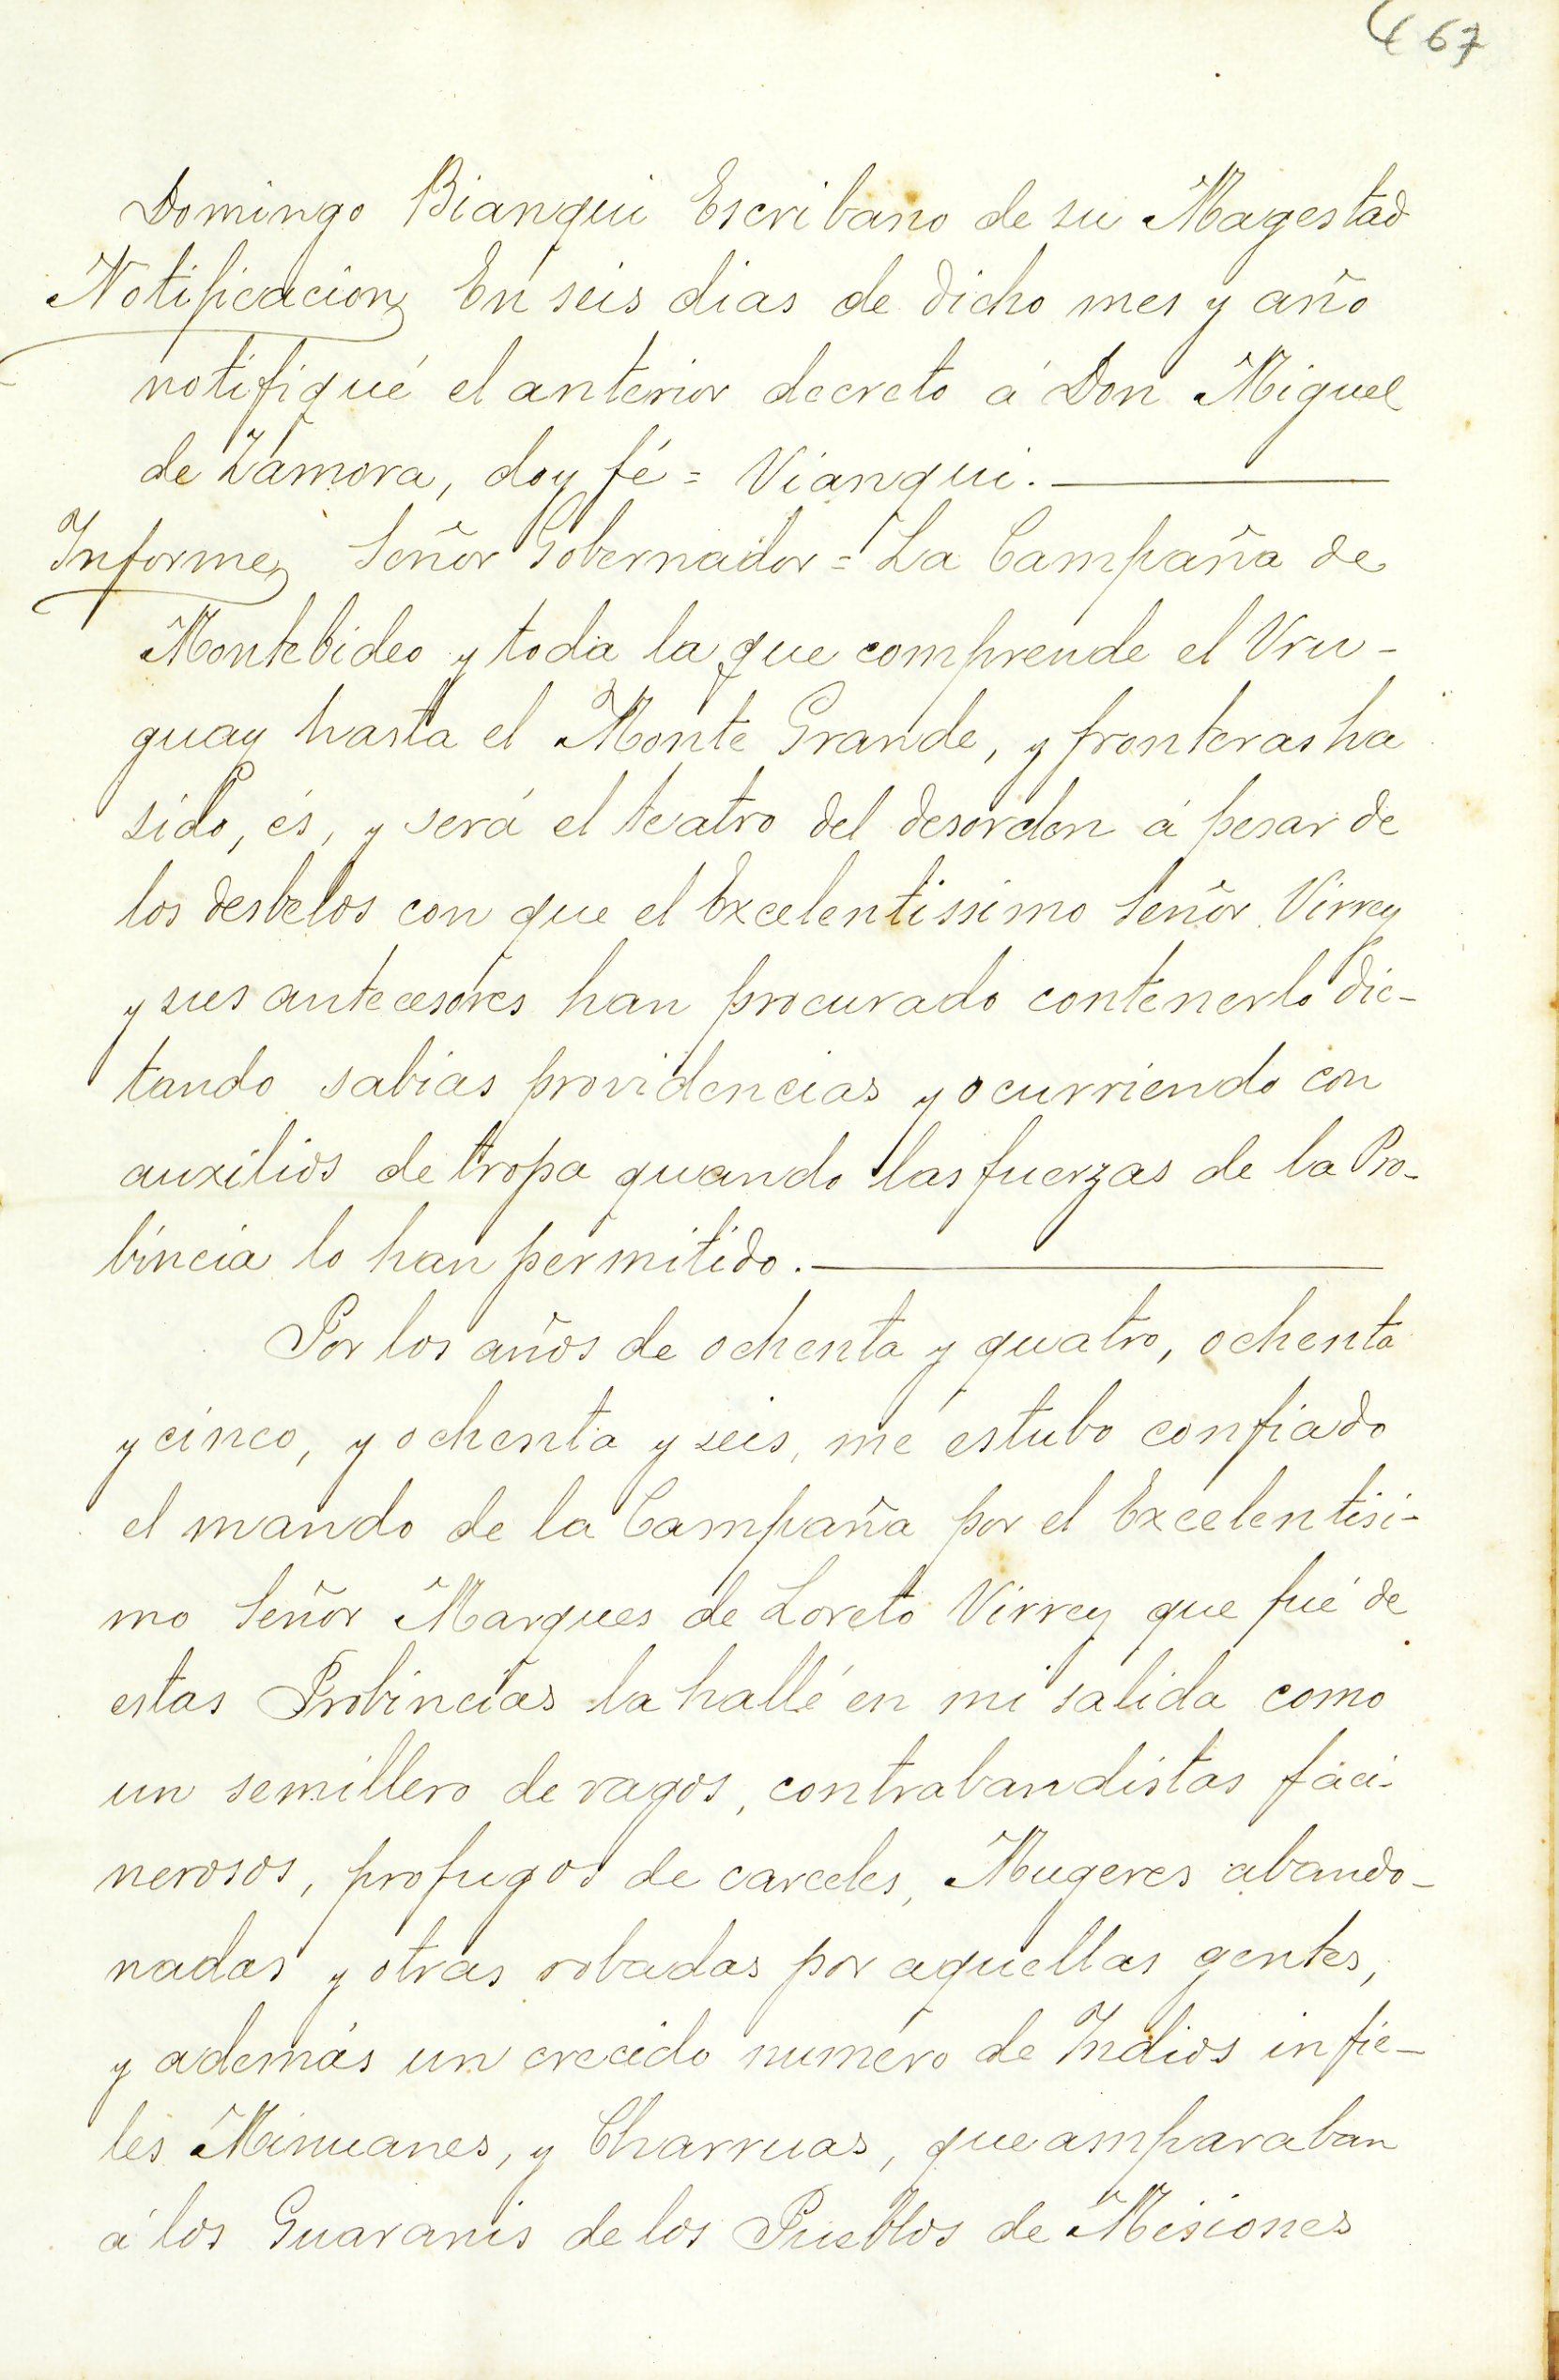 467
Domingo Bianqui Escribano de su Magestad
Notificacion En seis dias de dicho mes y año
notifiqué el anterior decreto á Don Miguel
de Zamora, doy fé = Vianqui.
Informe Señor Gobernador = La Campaña de
Montebideo y toda la que comprende el Vru-
guay hasta el Monte Grande, y fronteras ha
sido, és, y será el teatro del desorden á pesar de
los desbelos con que el Excelentissimo Señor Virrey
y sus antecesores han procurado contenerlo dic-
tando sabias providencias y ocurriendo con
auxilios de tropa quando las fuerzas de la Pro-
bincia lo han permitido.
Por los años de ochenta y quatro, ochenta
y cinco, y ochenta y seis, me estubo confiado
el mando de la Campaña por el Excelentisi-
mo Señor Marques de Loreto Virrey que fué de
estas Probincias la hallé en mi salida como
un semillero de vagos, contrabandistas faci-
nerosos, profugos de carceles, Mugeres abando-
nadas y otras robadas por aquellas gentes,
y además un crecido numero de Indios infie-
les Minuanes, y Charruas, que amparaban
á los Guaranis de los Pueblos de Misiones